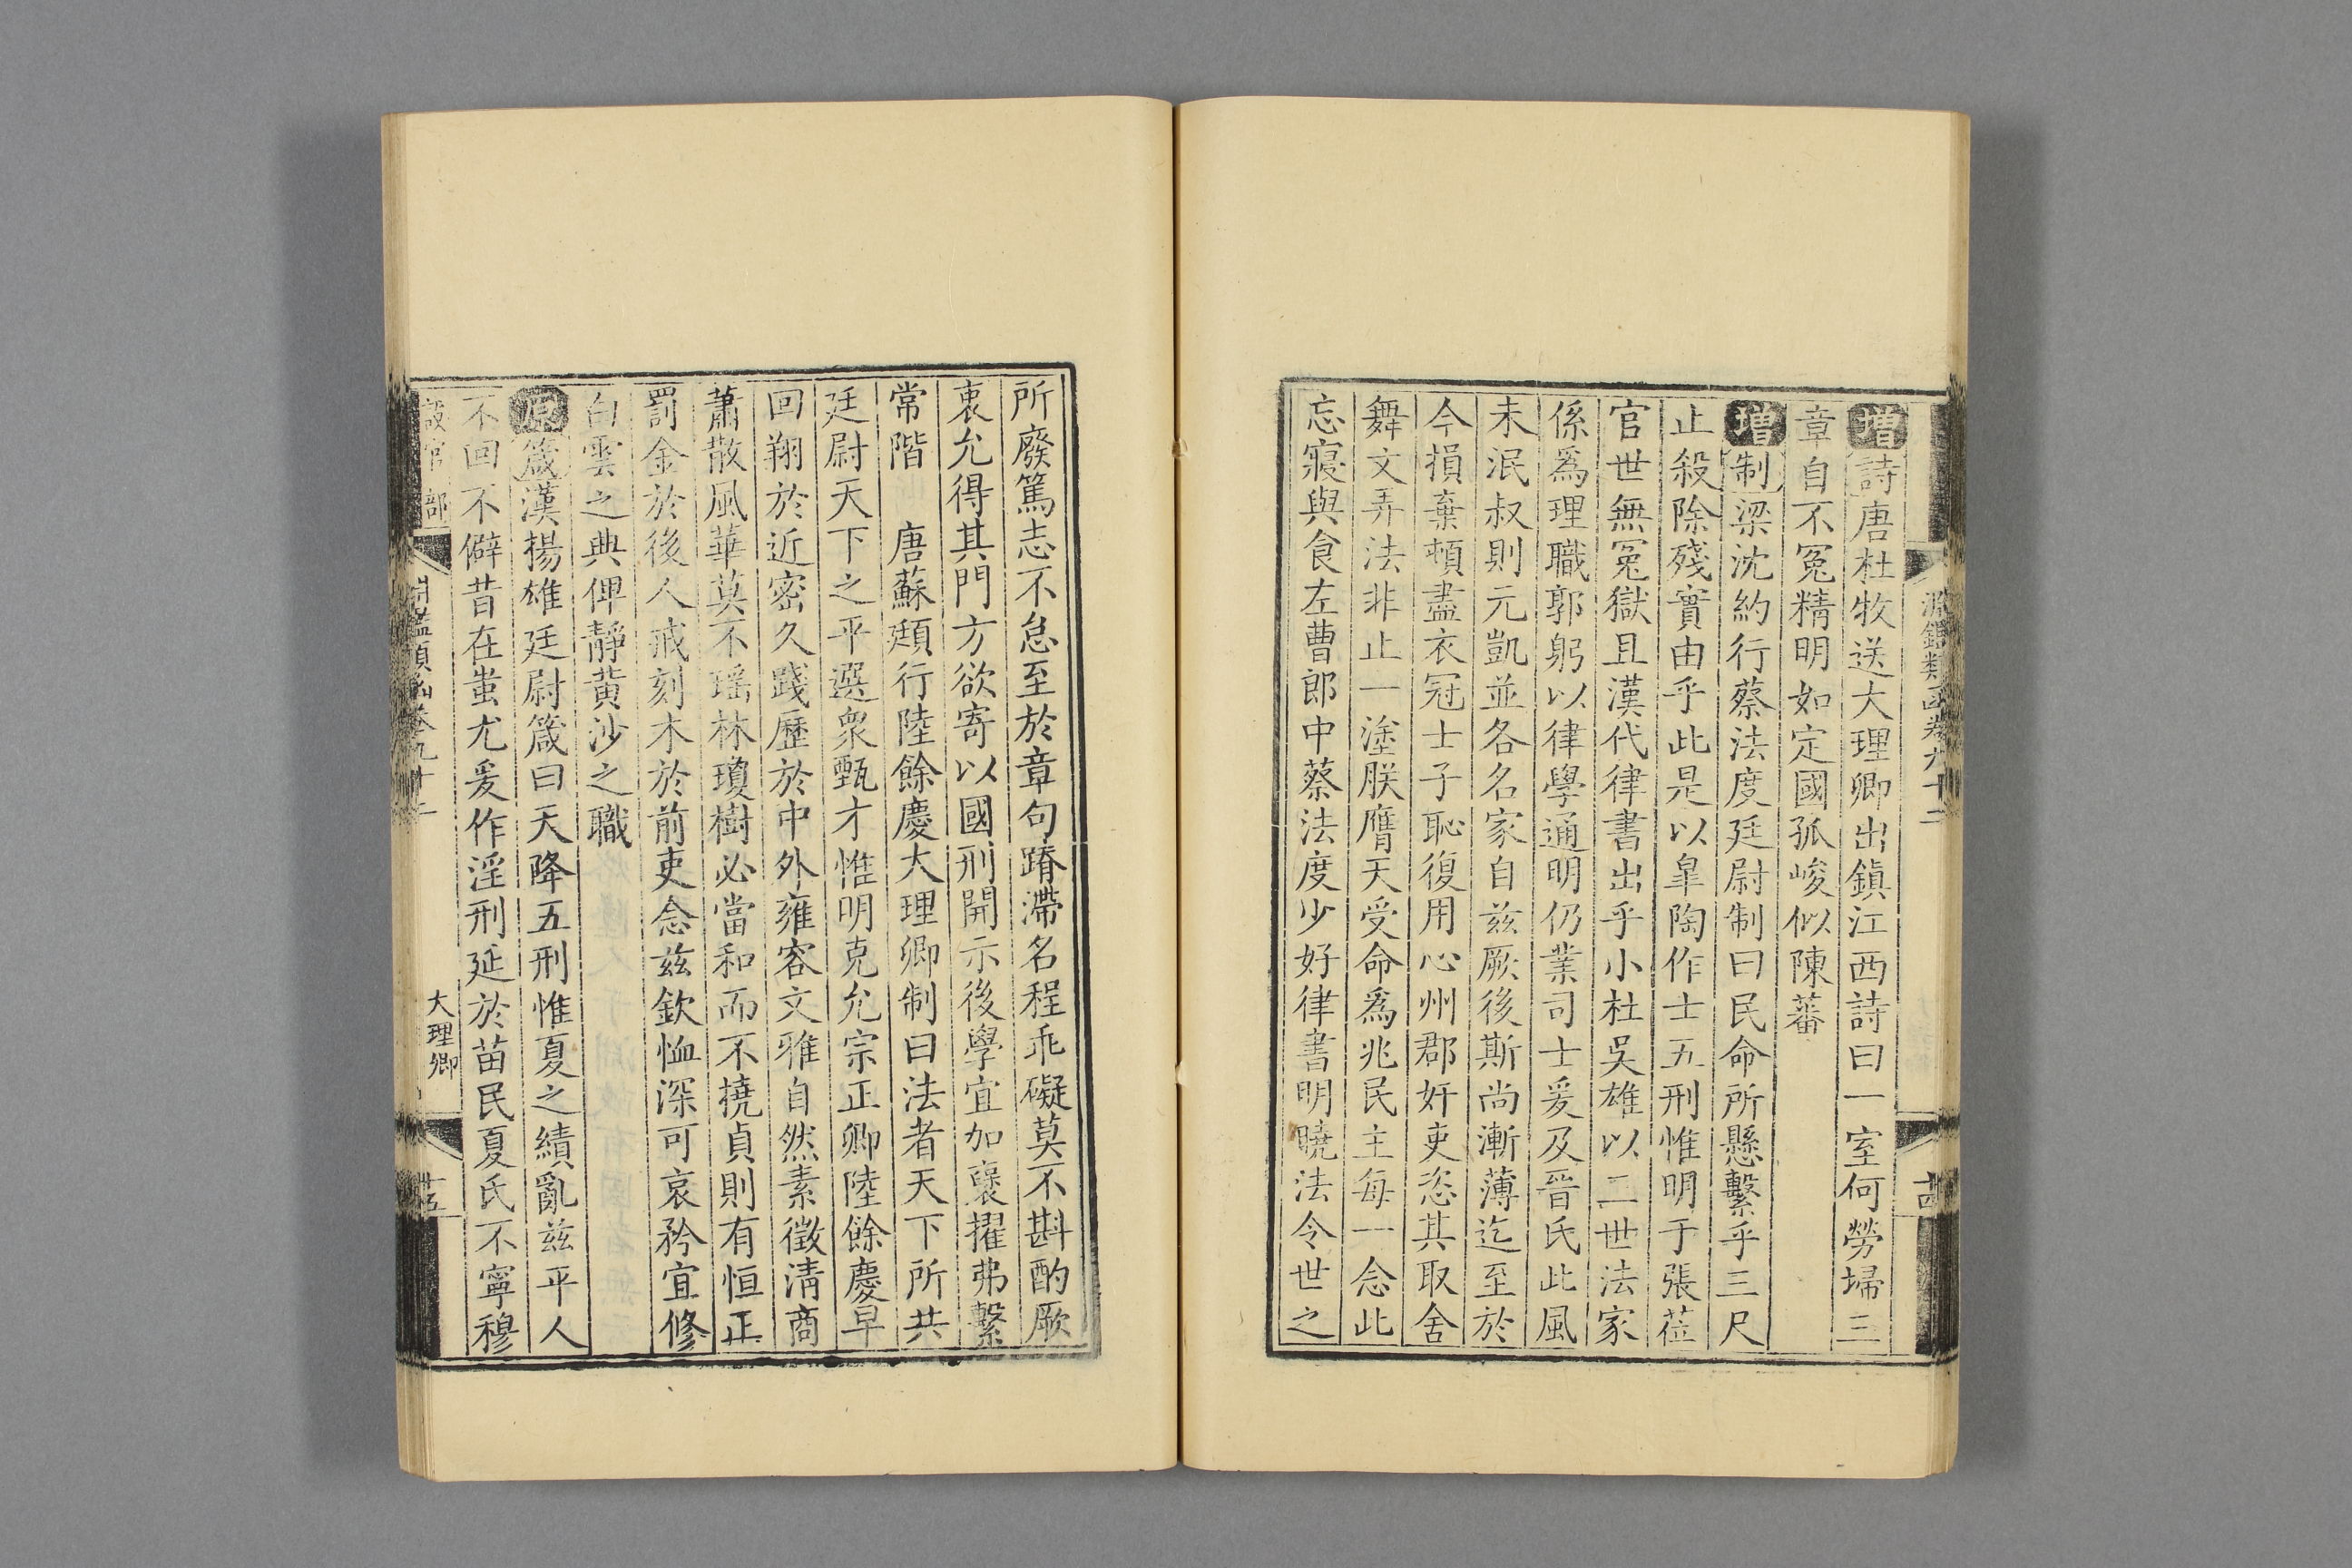 淵鑑類函卷九十二
十四
增詩唐杜牧送大理卿出鎮江西詩曰一室何勞埽三
章自不冤精明如定國孤峻似陳蕃
增制梁沈約行蔡法度廷尉制曰民命所懸繫乎三尺
止殺除殘實由乎此是以皐陶作士五刑惟明于張莅
官世無冤獄且漢代律書出乎小杜吳雄以二世法家
係爲理職郭躬以律學通明仍業司士爰及晉氏此風
未泯叔則元凱並各名家自兹厥後斯尚漸薄迄至於
今損棄頓盡衣冠士子恥復用心州郡奸吏恣其取舍
舞文弄法非止一塗朕膺天受命爲兆民主每一念此
忘寢與食左曹郎中蔡法度少好律書明曉法令世之
所廢篤志不怠至於章句踳滯名程乖礙莫不斟酌厥
衷允得其門方欲寄以國刑開示後學宜加襃擢弗繫
常階　唐蘇頲行陸餘慶大理卿制曰法者天下所共
廷尉天下之平選衆甄才惟明克允宗正卿陸餘慶早
回翔於近密久踐歷於中外雍容文雅自然素徵清商
蕭散風華莫不瑶林瓊樹必當和而不撓貞則有恒正
罰金於後人戒刻木於前吏念兹欽恤深可哀矜宜修
白雲之典俾靜黃沙之職
原箴漢揚雄廷尉箴曰天降五刑惟夏之績亂兹平人
不回不僻昔在蚩尤爰作淫刑延於苗民夏氏不寧穆
設官部
淵鑑類函卷九十二
大理卿
十五